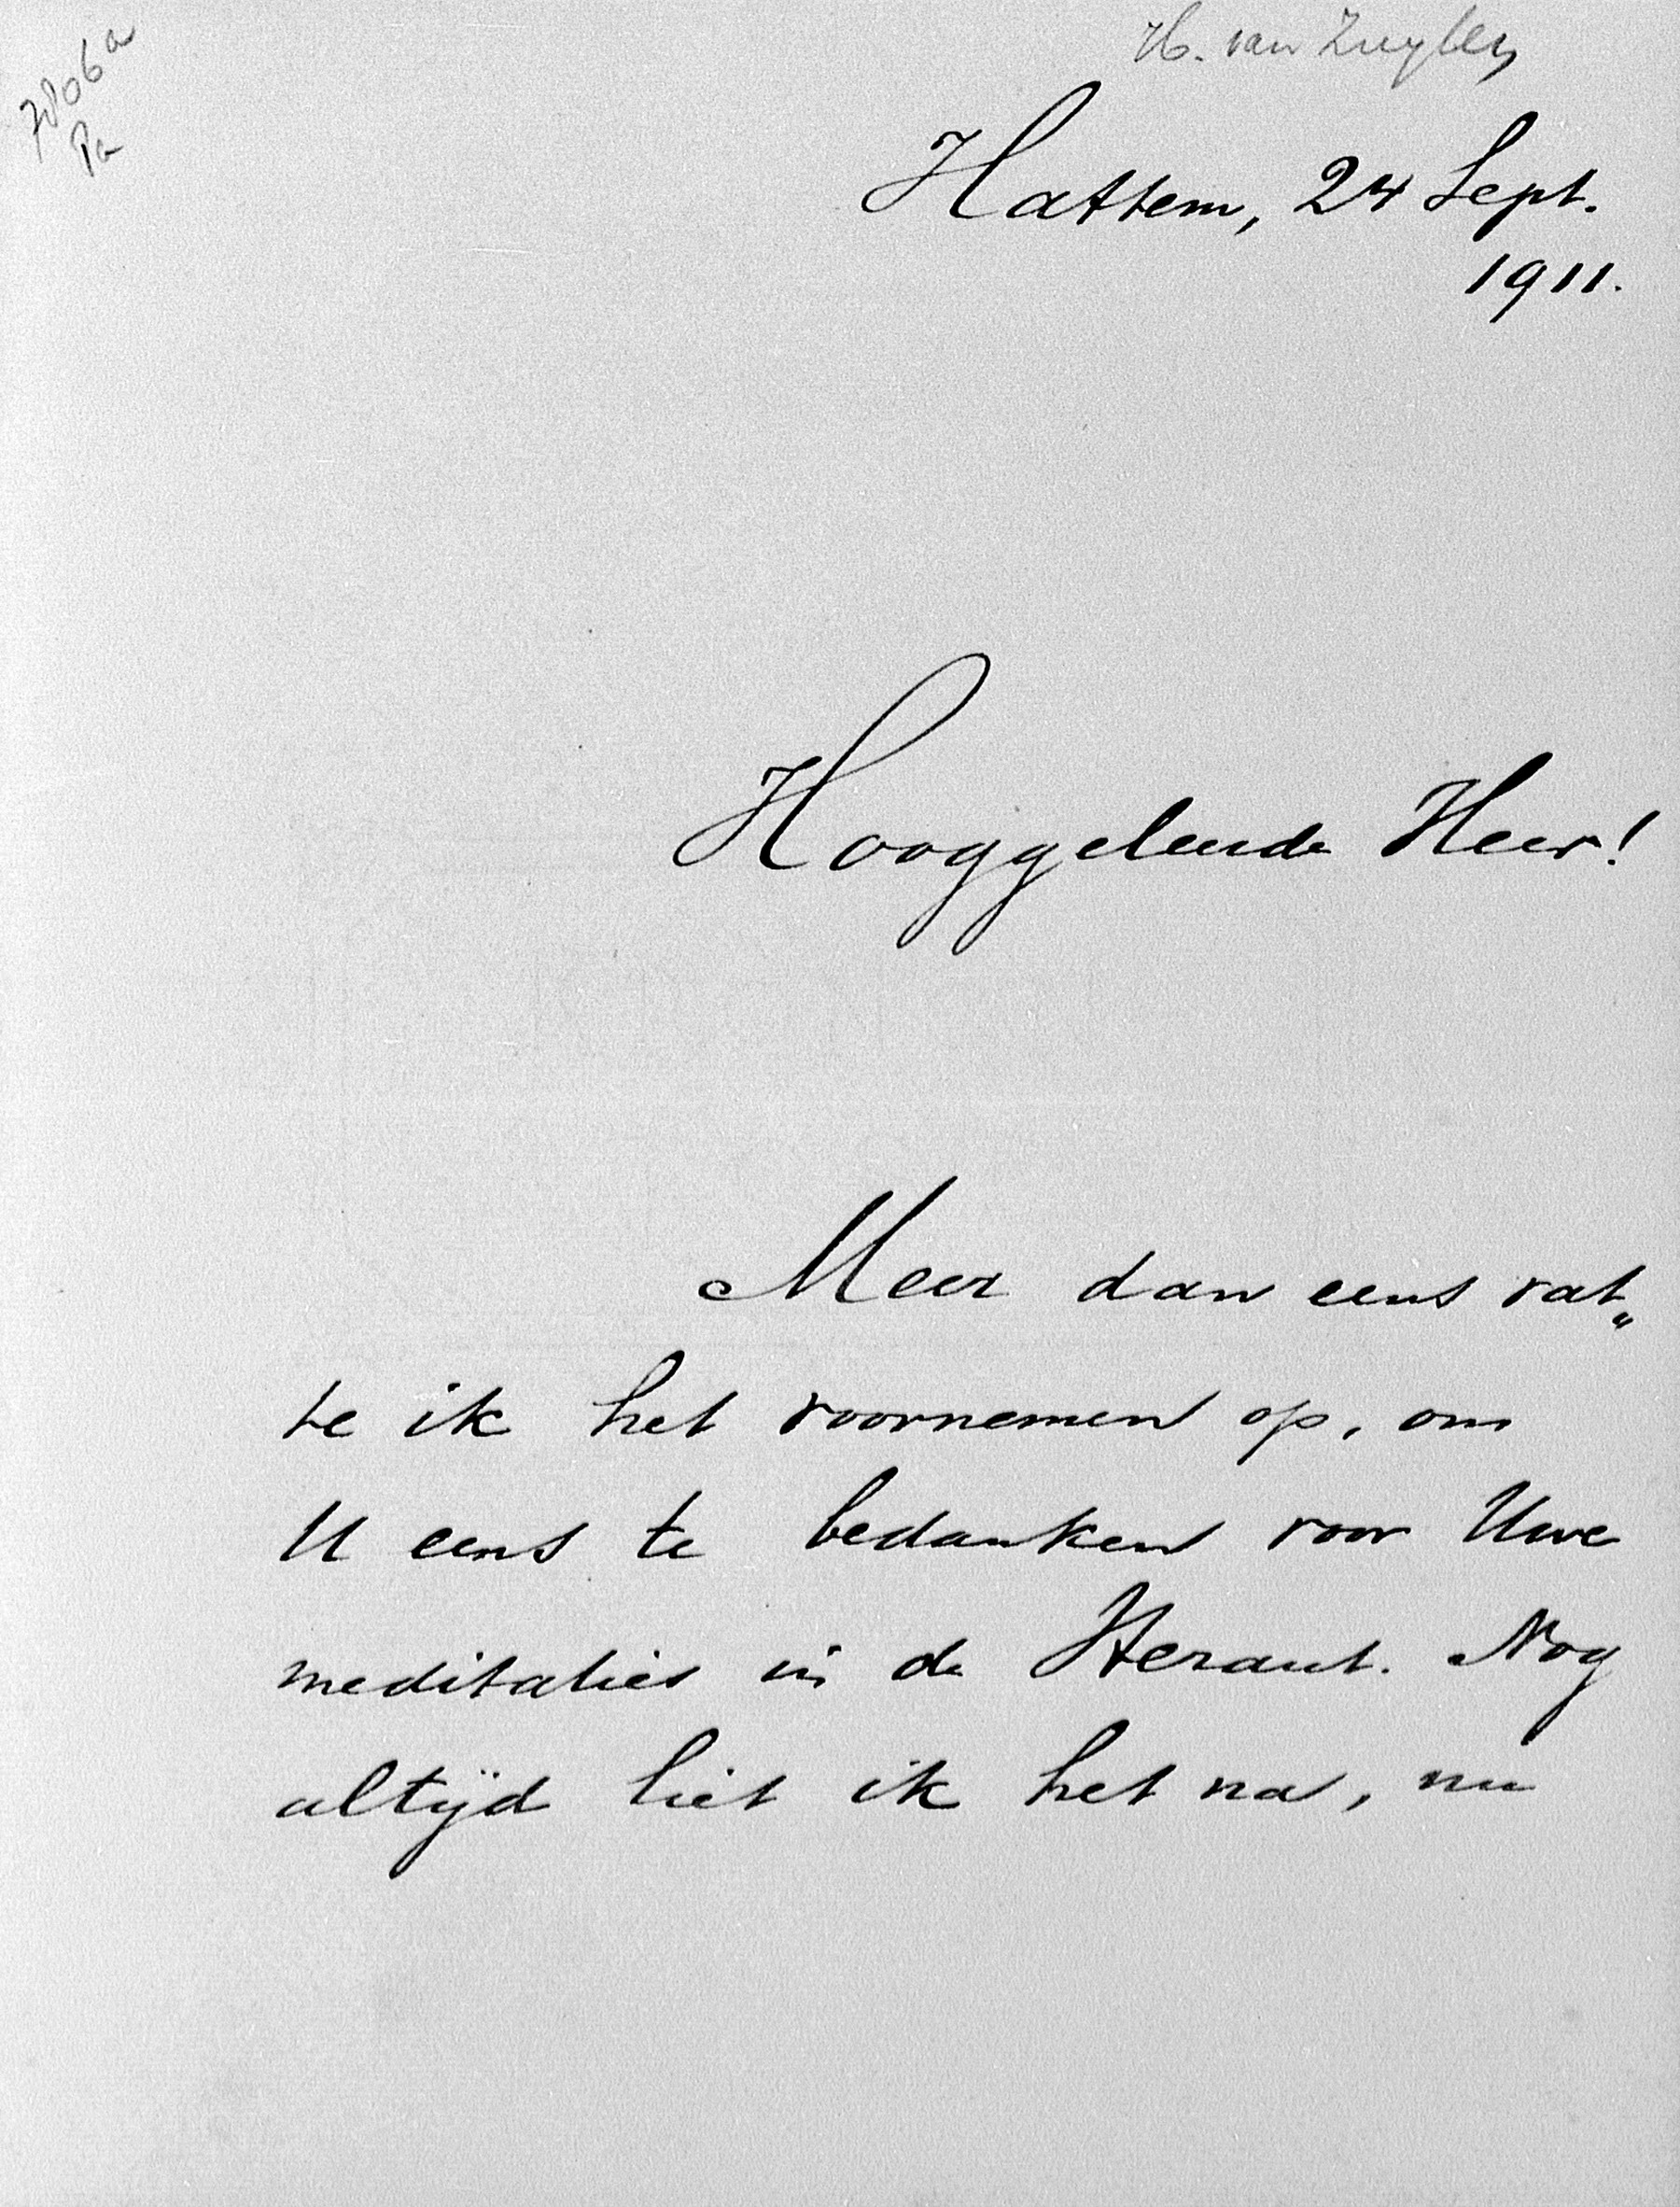 7806a
Pa
H. van Zuylen
Hattem, 24 Sept.
1911.
Hooggeleerde Heer!
Meer dan eens vat„
te ik het voornemen op, om
U eens te bedanken voor Uwe
meditaties in de Heraut. Nog
altijd liet ik het na, nu